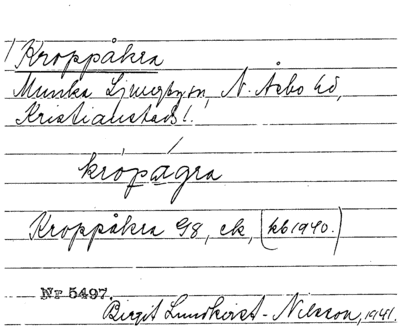 Kroppåkra
Munka Ljungby sn, N. Åsbo hd,
Kristianstads l.
krópágra
Kroppåkra 98, ek, (kb 1940.)
Nr 5497.
Birgit Lundkvist-Nilsson, 1941.